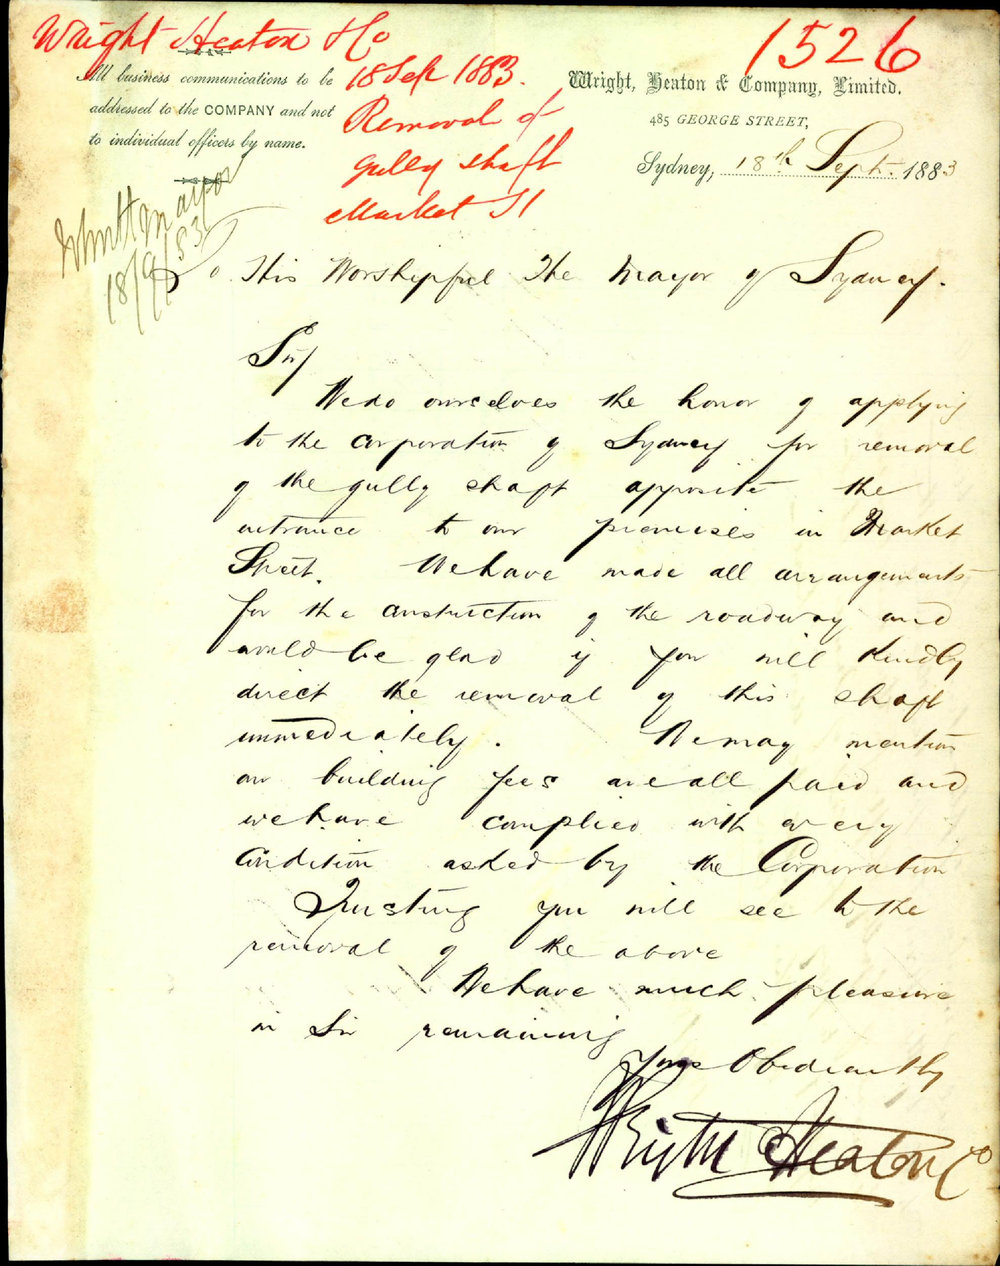 Wright Heaton & Co
1526
18 Sep 1883.
Removal of
gully shaft
Market St
All business communications to be
addressed to the COMPANY and not
to individual officers by name.
Wright, Heaton & Company, Limited.
485 GEORGE STREET,
Sydney, 18th Sept. 1883
Mayor
18/9/83
To His Worshipful The Mayor of Sydney.
Sir/
We do ourselves the honor of applying
to the corporation of Sydney for removal
of the gully shaft opposite the
entrance to our premises in Market
Street. We have made all arrangements
for the construction of the roadway and
would be glad if you will kindly
direct the removal of this shaft
immediately. We may mention
our building fees are all paid and
we have complied with every
condition asked by the Corporation
Trusting you will see to the
removal of the above
We have much pleasure
in Sir remaining
Yours Obediently
Wright Heaton & Co